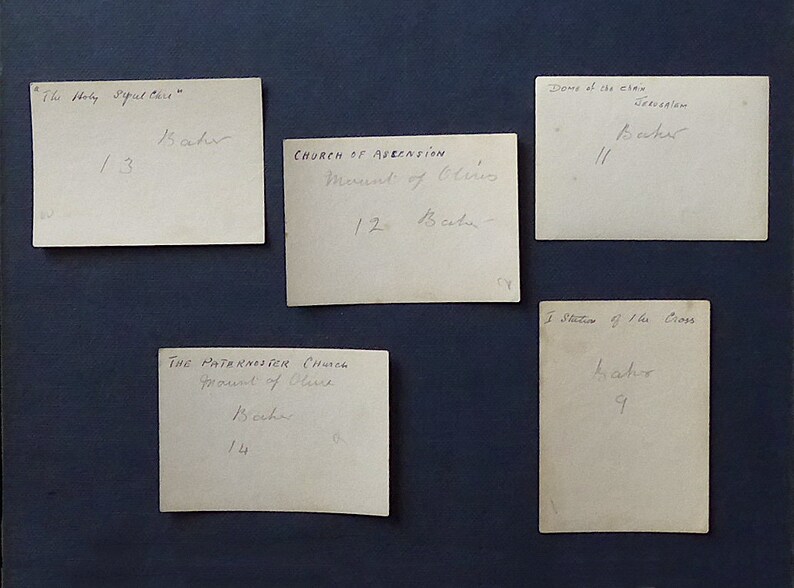 "The Holy Sepulchre"
Baker
13
CHURCH OF ASCENSION
Mount of Olives
12 Baker
DOME of the CHAIN
JERUSALEM
Baker
11
THE PATERNOSTER CHURCH
Mount of Olive
Baker
14
I Station of the Cross
Baker
9